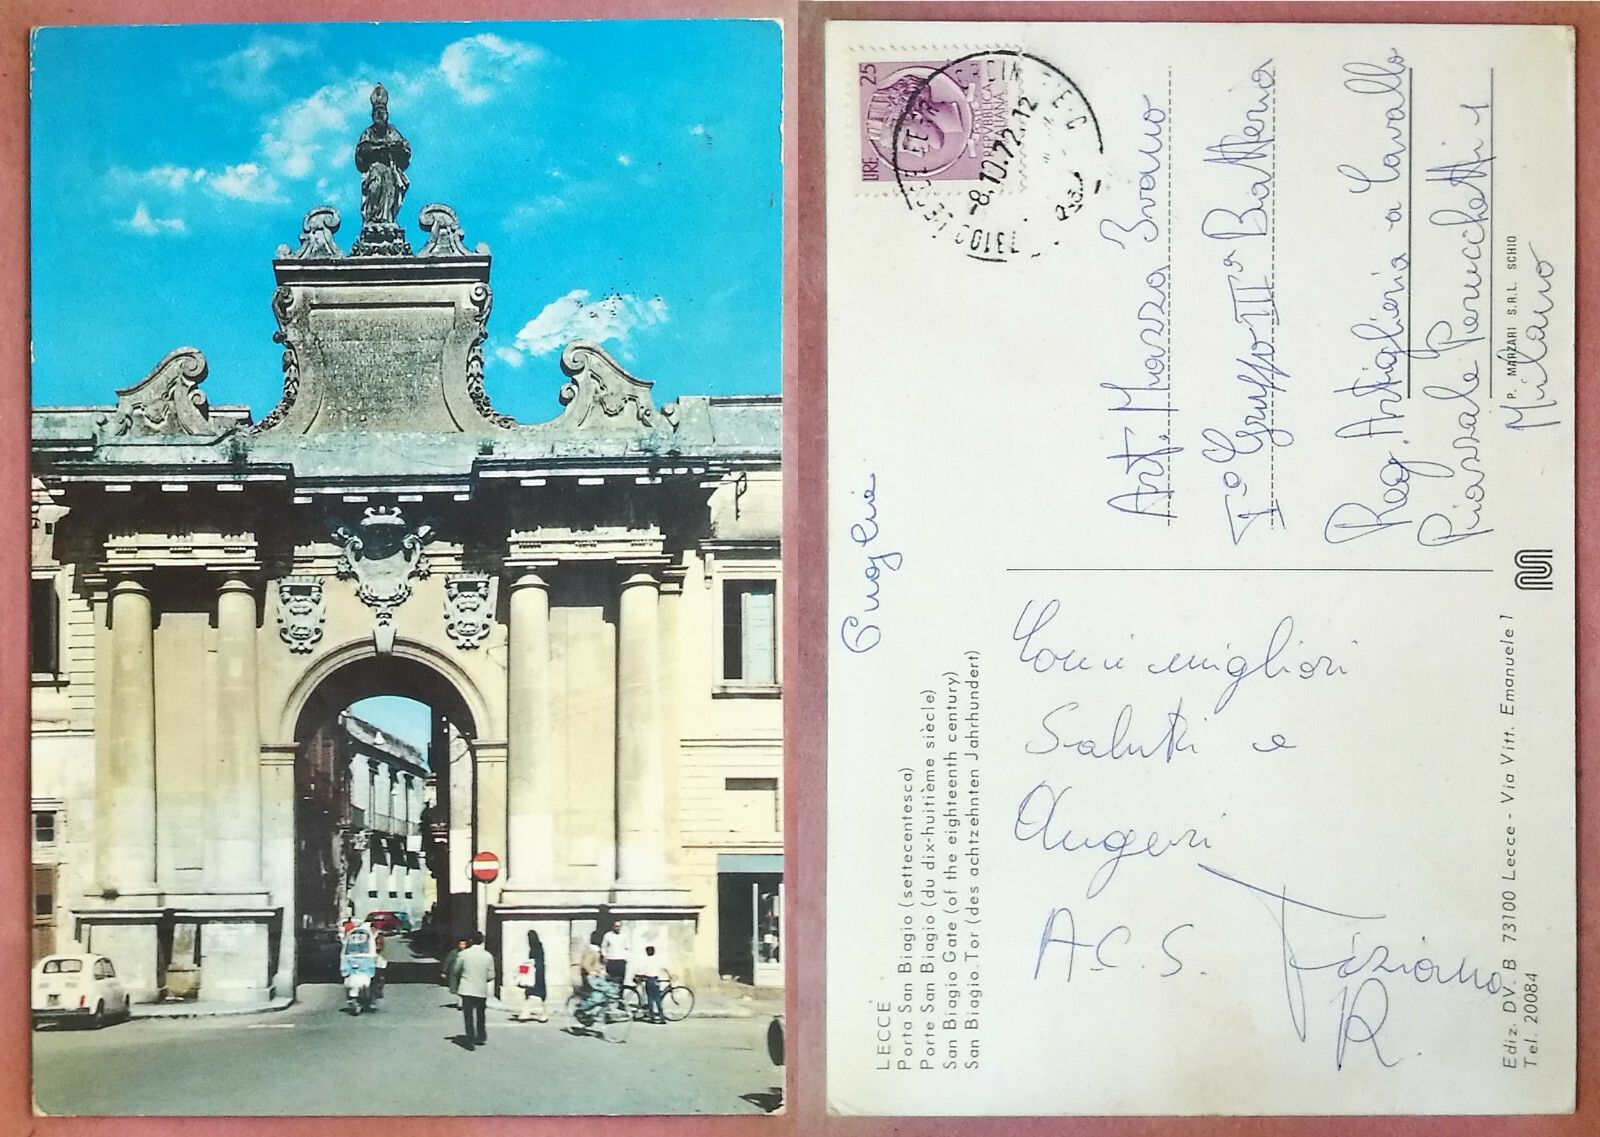 LIRE 25
REPVBBLICA
ITALIANA
73100 LECCE
-8.10.72.12
Puoglie
LECCE
Porta San Biagio (settecentesca)
Porte San Biagio (du dix-huitième siècle)
San Biagio Gate (of the eighteenth century)
San Biagio. Tor (des achtzehnten Jahrhundert)
Con i migliori
Saluti e
Auguri
A.C.S. Tiziano
R.
Art. Mazza Ivano
I° Gruppo III a Batteria
Reg. Artiglieria a Cavallo
Piazzale Perucchetti 1
Milano
P. MARZARI S.R.L. SCHIO
Ediz. DV. B 73100 Lecce - Via Vitt. Emanuele 1
Tel. 20084